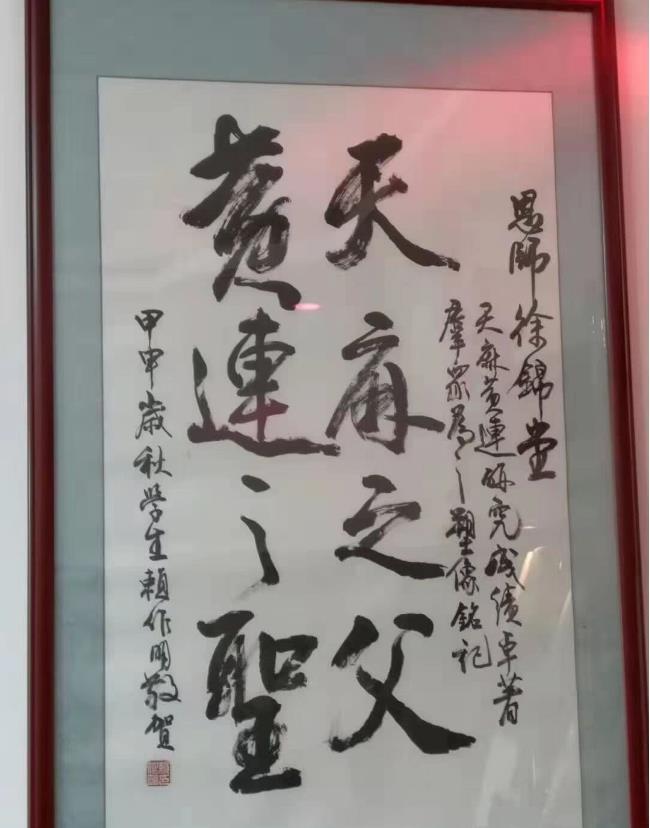 恩師徐錦堂
天麻黄連研究成績卓著
羣眾為之塑像銘記
天麻之父
黄連之聖
甲申歲秋學生賴作明敬賀